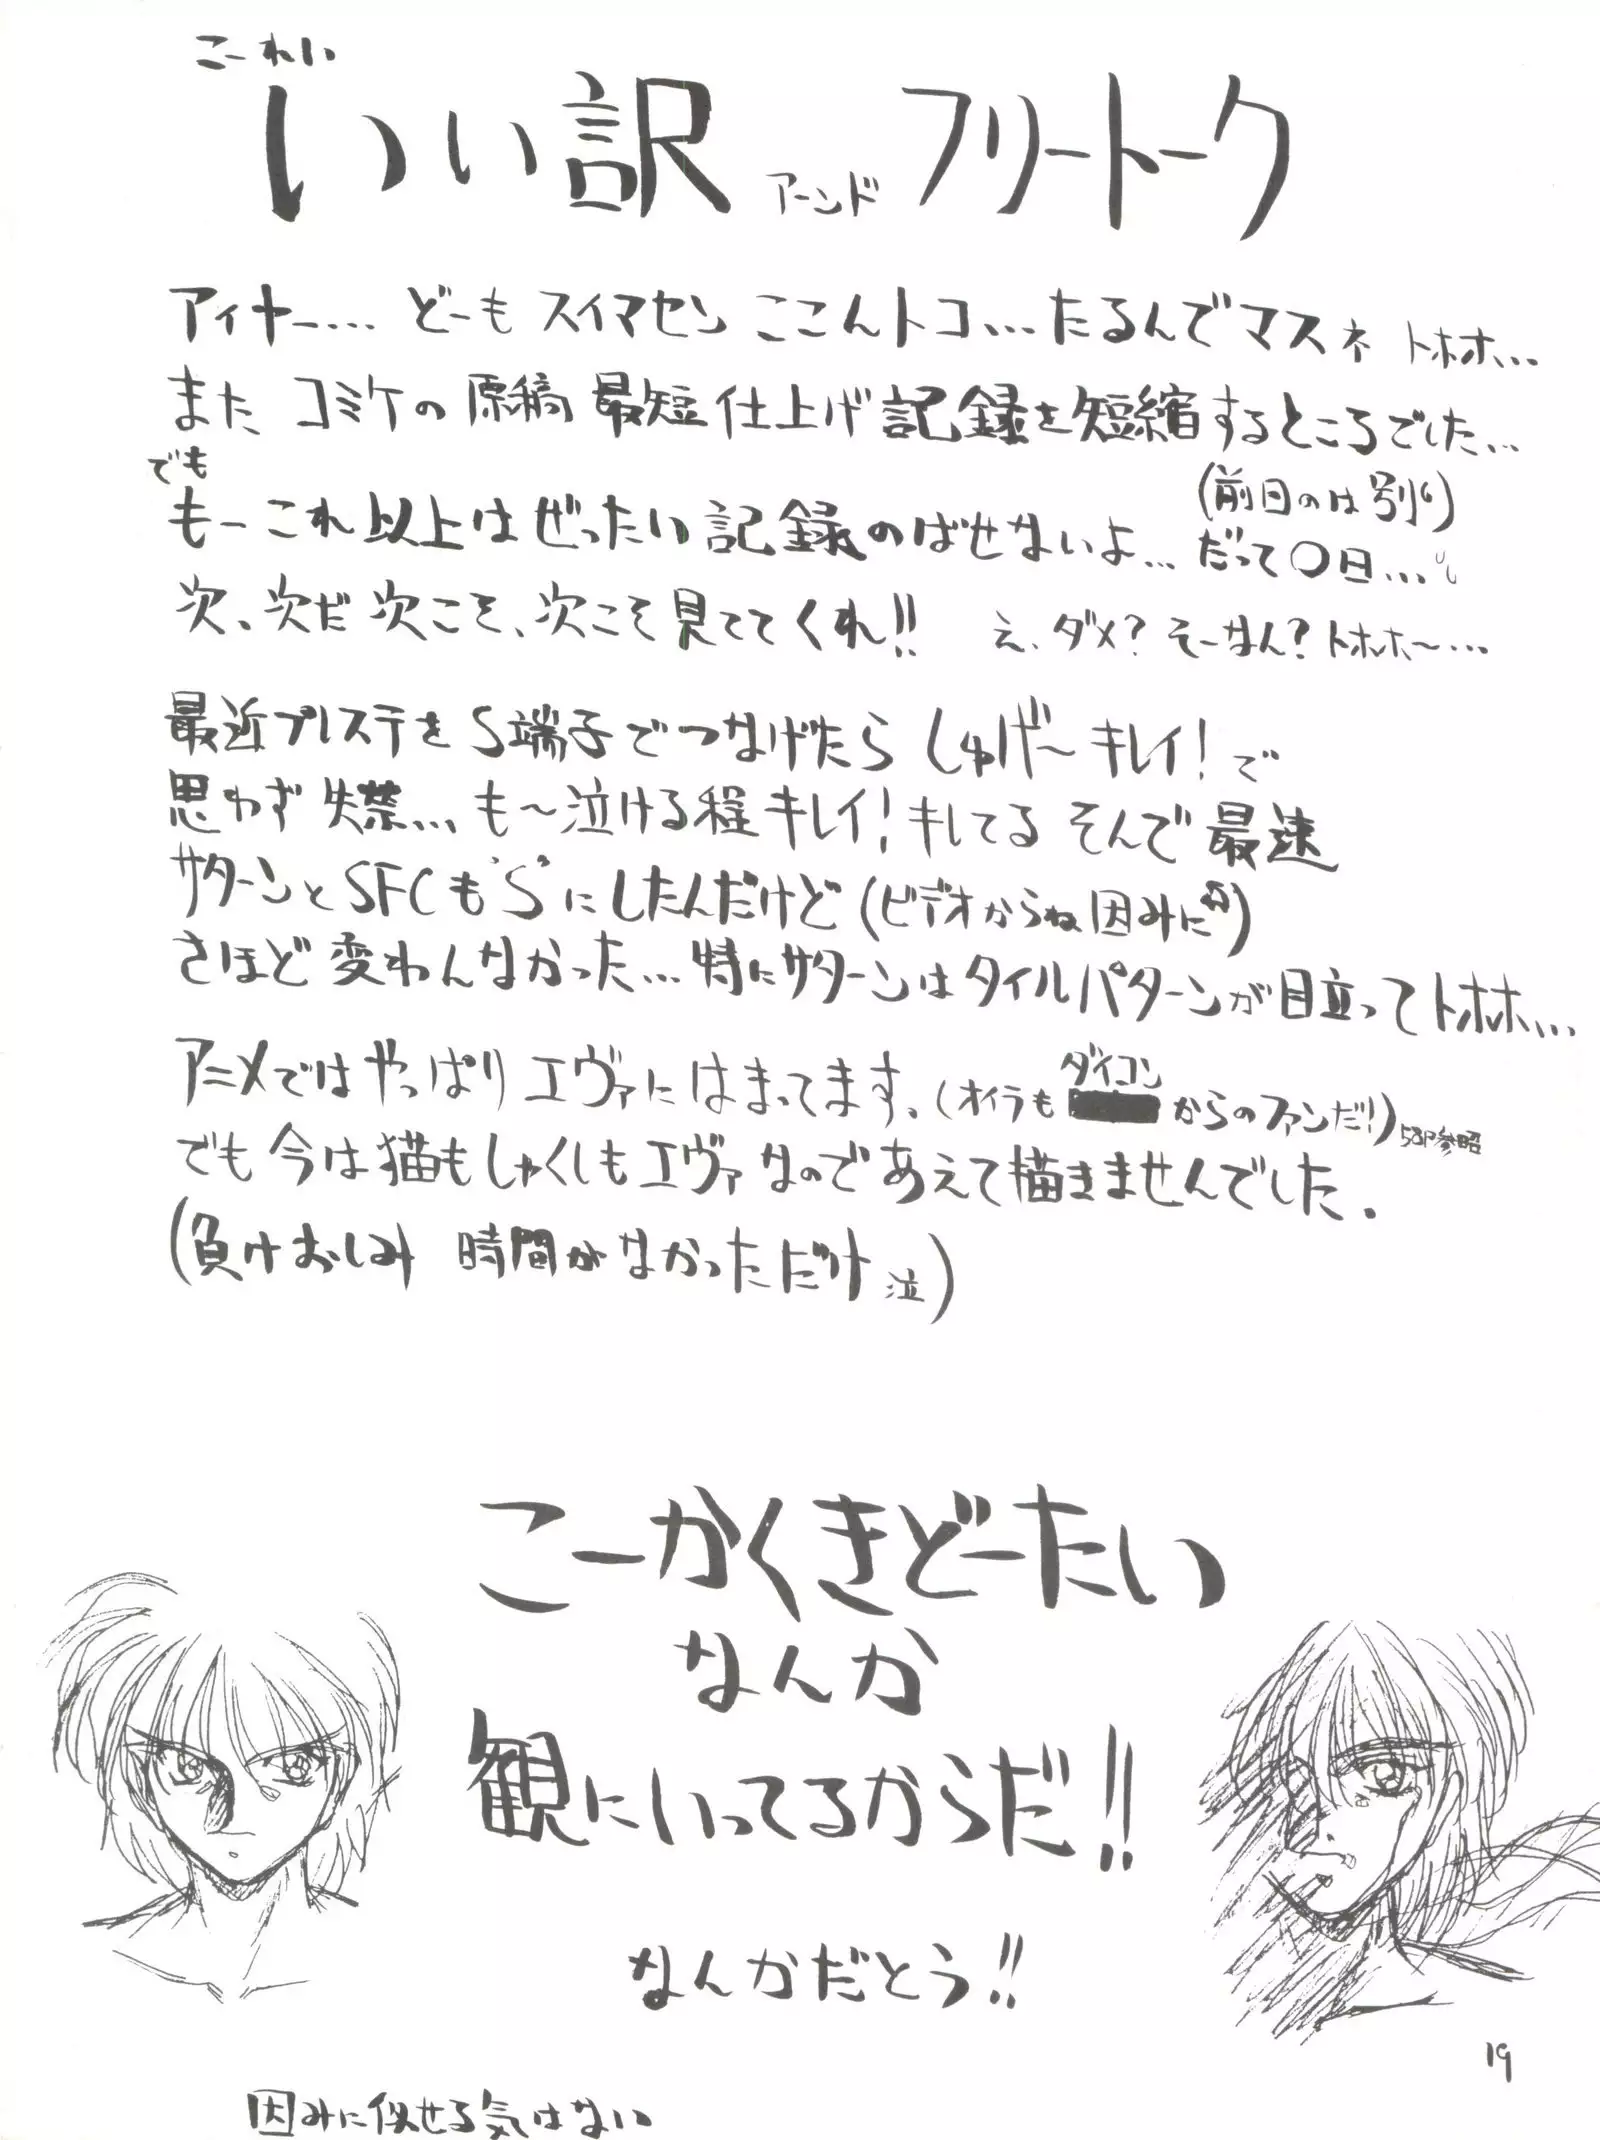 こーれい
いい訳 アーンド フリートーク
アィヤー…. どーも スイマセン ここんトコ… たるんでマスネ トホホ…
また コミケの 原稿 最短 仕上げ 記録を 短縮するところでした…
でも
(前日のは別)
もーこれ以上はぜったい記録のばせないよ… だって〇日…
次、次だ 次こそ、次こそ見ててくれ!! え、ダメ? そーなん? トホホ〜…
最近プレステをS端子でつなげたら しゅげ〜キレイ!で
思わず失禁… も〜泣ける程キレイ!キしてる そんで最速
サターンとSFCも"S"にしたんだけど(ビデオからね 因みに)
さほど変わんなかった… 特にサターンはタイルパターンが目立ってトホホ…
アニメではやっぱりエヴァにはまってます。(オイラも ダイコン からのファンだ!) 58P参照
でも今は猫もしゃくしもエヴァなのであえて描きませんでした。
(負けおしみ 時間がなかっただけ 泣)
こーかくきどーたい
なんか
観にいってるからだ!!
なんかだとう!!
19
因みに似せる気はない